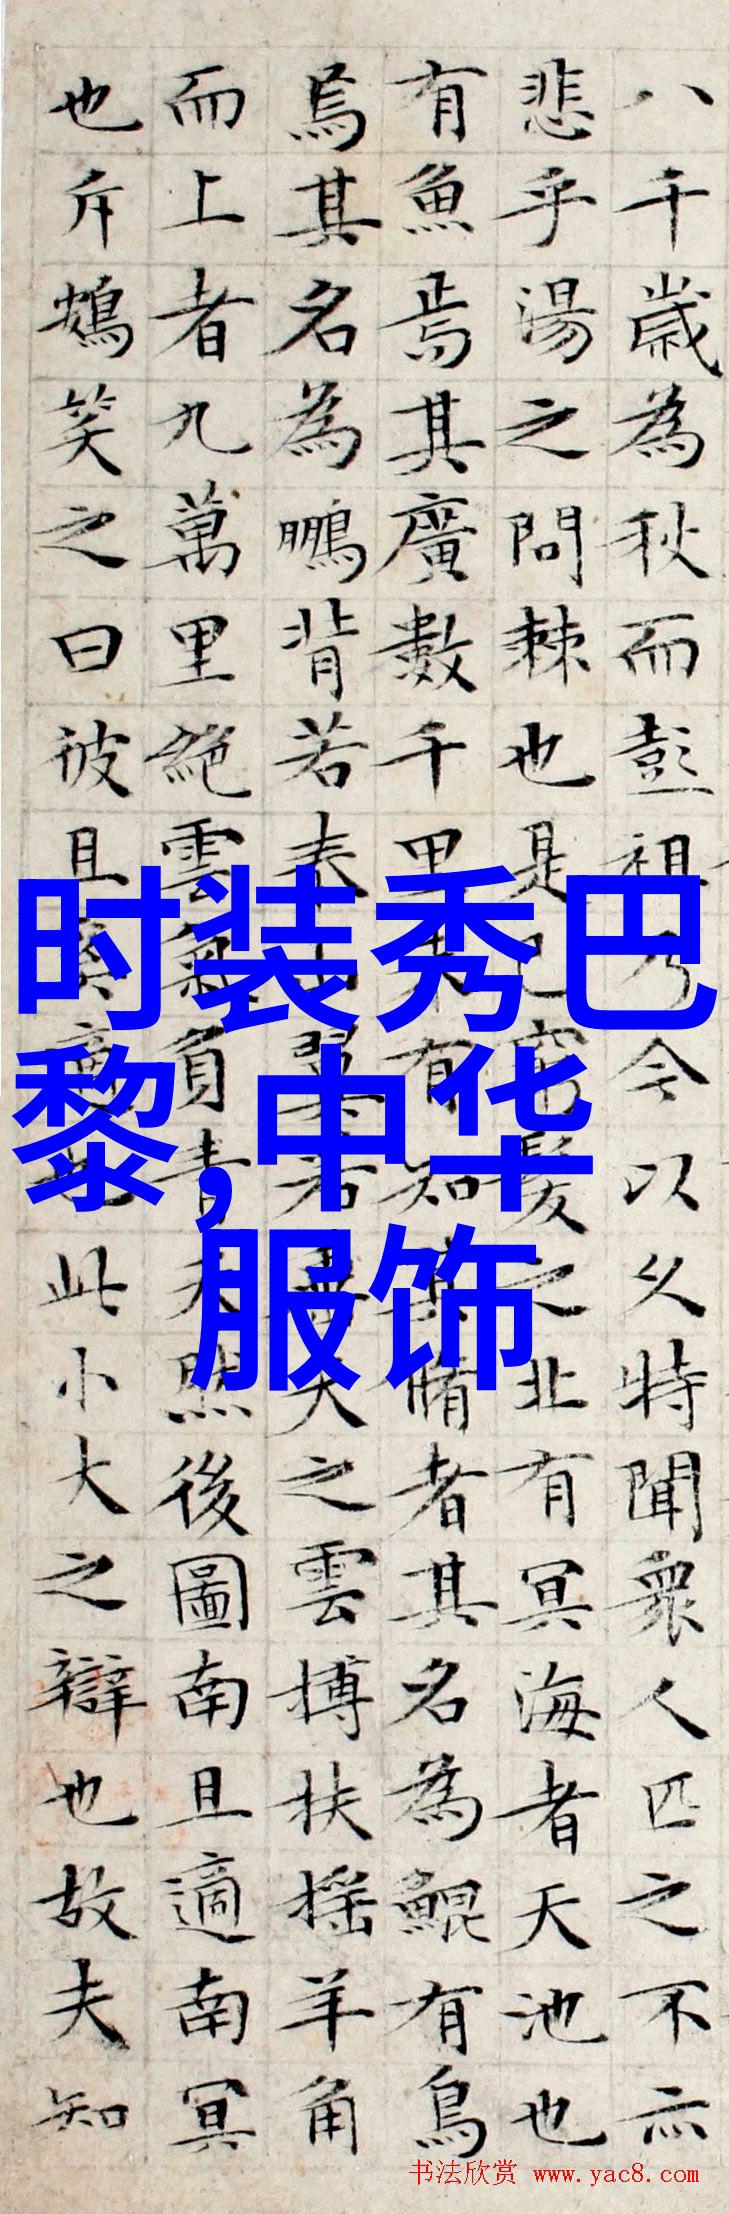 八千歲為秋而彭祖乃今以久特聞衆人匹之不亦
悲乎湯之問棘也是已窮髮之北有冥海者天池也
有魚焉其廣數千里未有知其脩者其名為鯤有鳥
焉其名為鵬背若泰山翼若垂天之雲搏扶摇羊角
而上者九萬里絕雲氣負青天然後圖南且適南冥
也斥鴳笑之曰彼且奚適也此小大之辯也故夫知
时装秀巴
黎,中华
服饰
书法欣赏 www.yac8.com